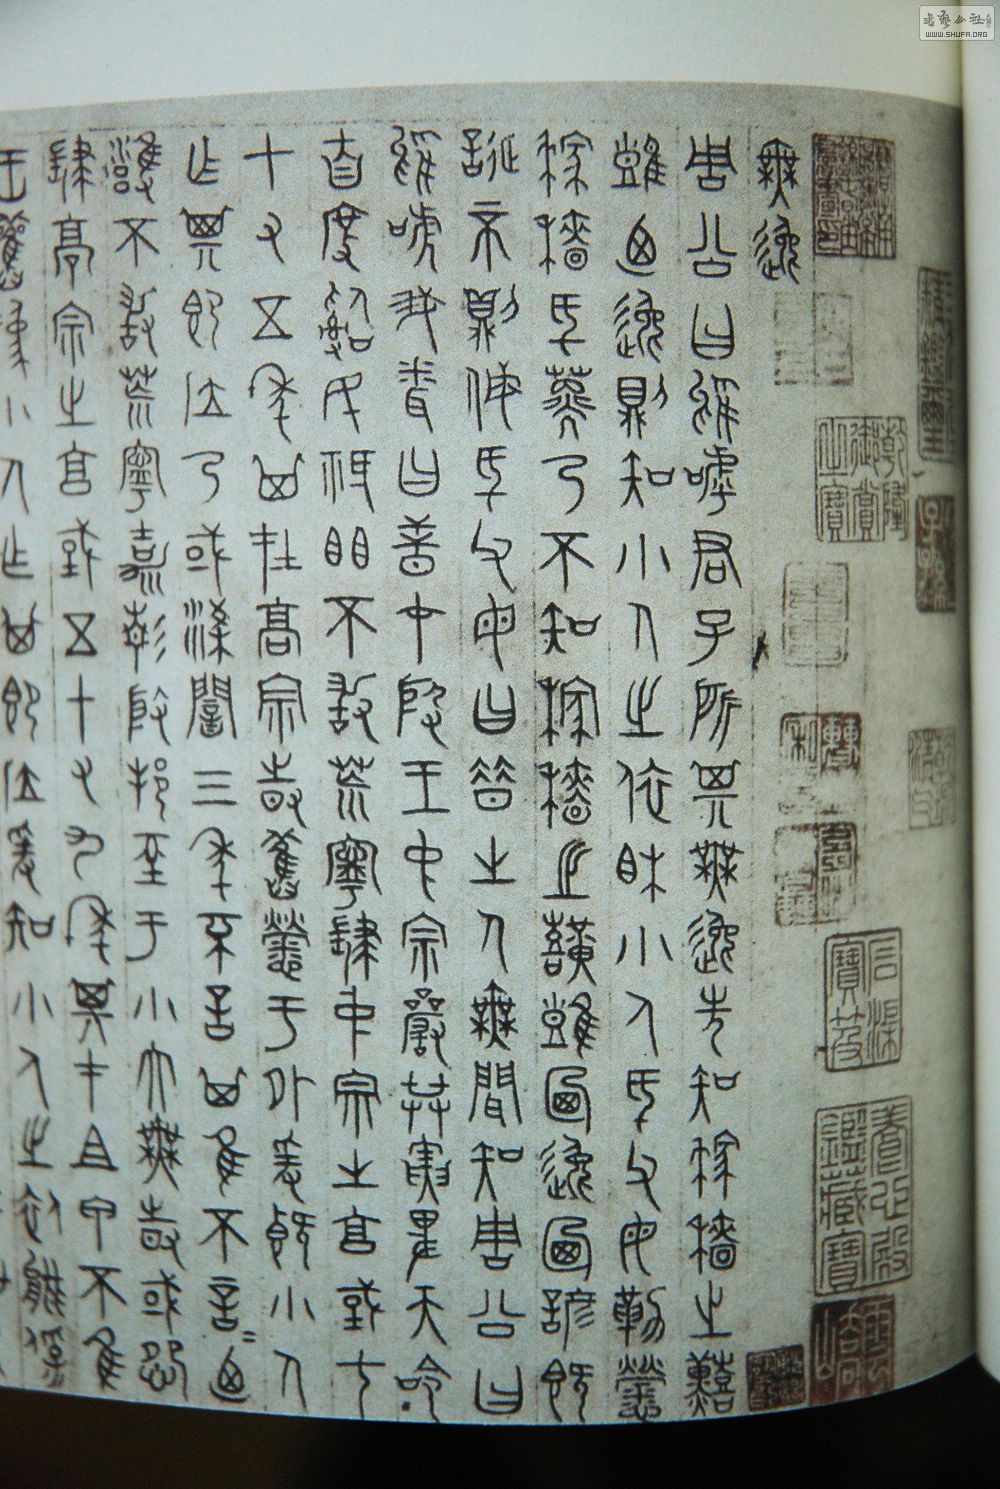 無逸
周公曰嗚呼君子所其無逸先知稼穡之艱
難迺逸則知小人之依相小人厥父母勤勞
稼穡厥子乃不知稼穡之艱難乃逸乃諺既
誕否則侮厥父母曰昔之人無聞知周公曰
嗚呼我聞曰昔在殷王中宗嚴恭寅畏天命
自度治民祗懼不敢荒寧肆中宗之享國七
十有五年其在高宗時舊勞于外爰暨小人
作其即位乃或亮闇三年不言其惟不言言乃
雍不敢荒寧嘉靖殷邦至于小大無時或怨
肆高宗之享國五十有九年其在祖甲不惟
王舊為小人作其即位爰知小人之依能保
WWW.SHUFA.ORG